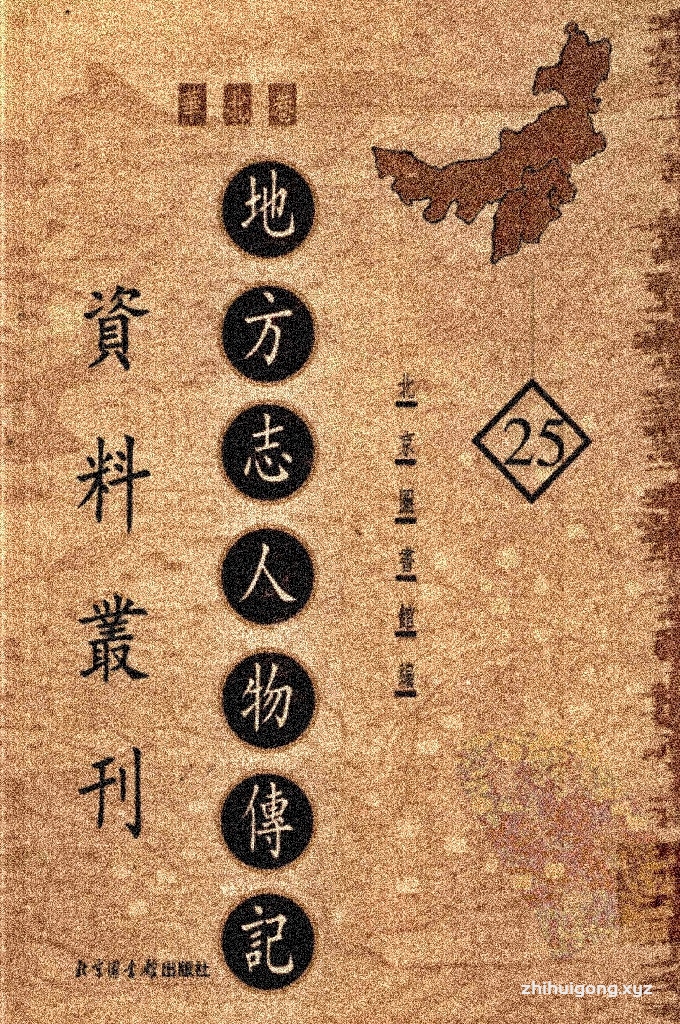 地方志人物傳記
資料叢刊
北京圖書館編
25
北京圖書館出版社
zhihuigong.xyz